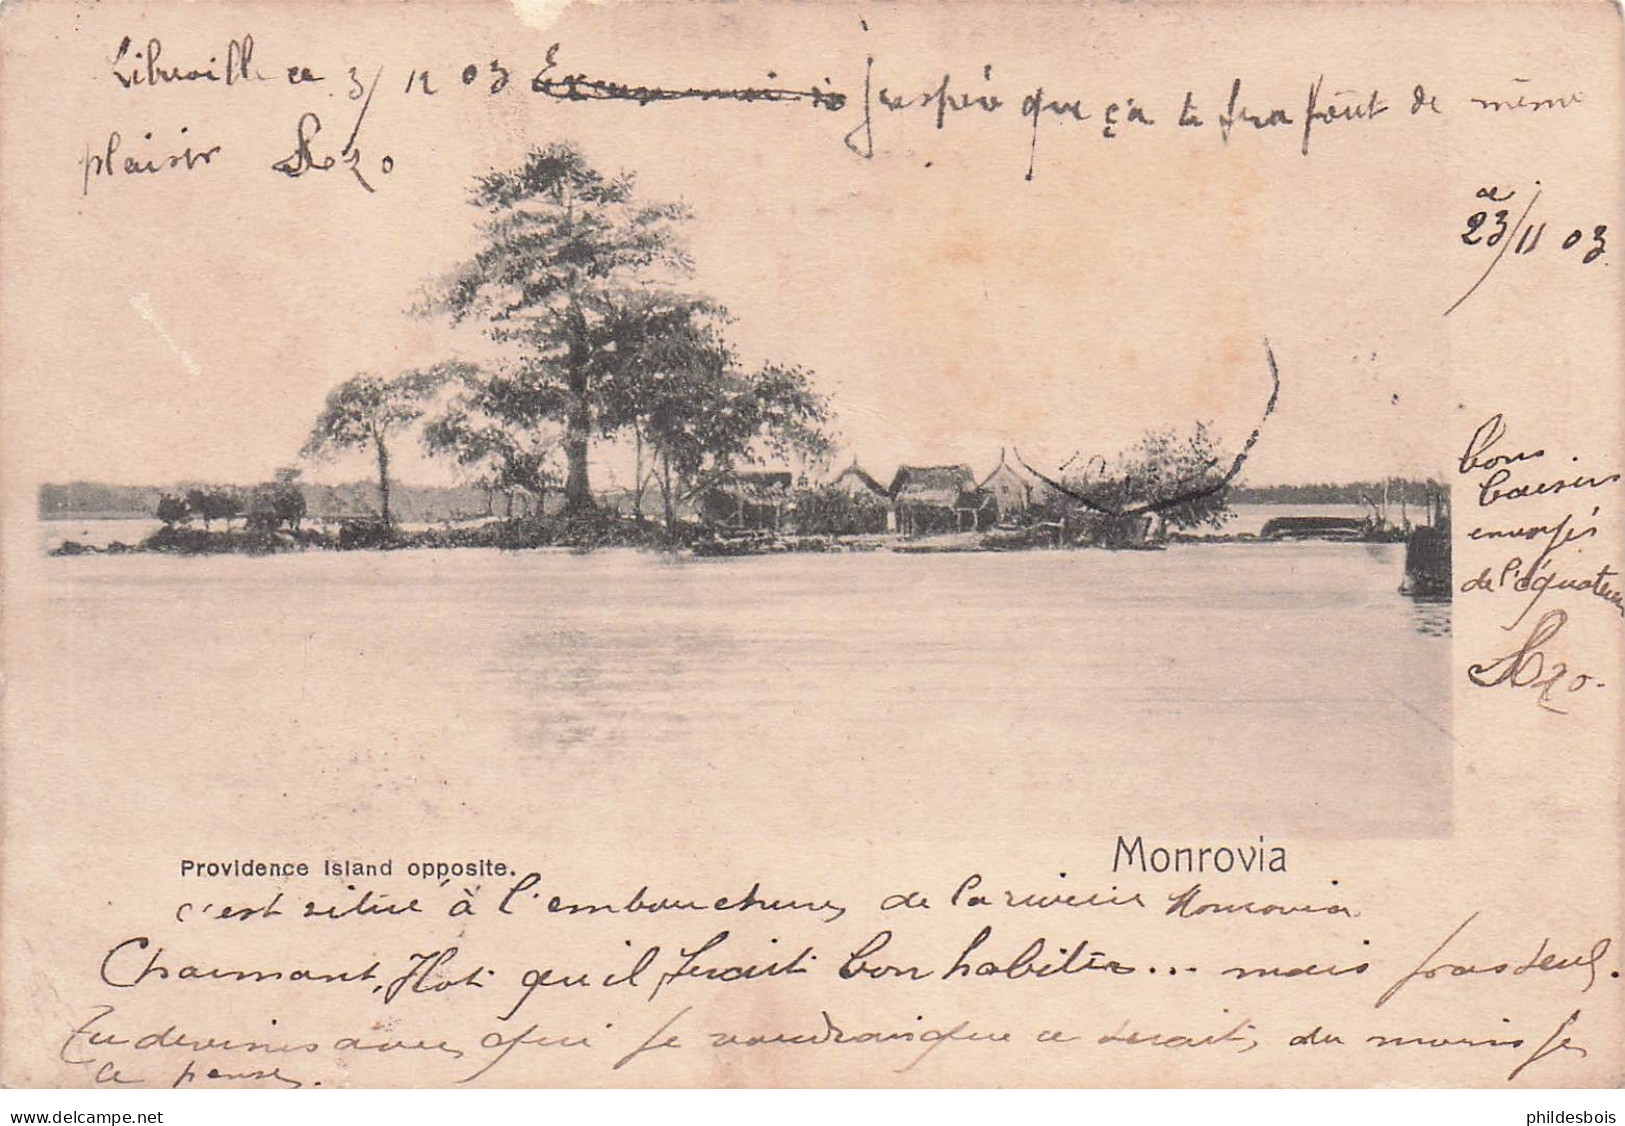 Libreville ce 3/12 03 Excuse-moi si J'espère que ça te fera tout de même
plaisir Azo
ce
23/11 03
bons
baisers
envoyés
de l'équateur
Azo.
Providence Island opposite.
Monrovia
c'est situé à l'embouchure de la rivière Monrovia
Charmant îlot qu'il ferait bon habiter... mais pas seul.
Tu devines avec qui je voudrais que ce serait, du moins je
le pense.
delcampe.net
phildesbois